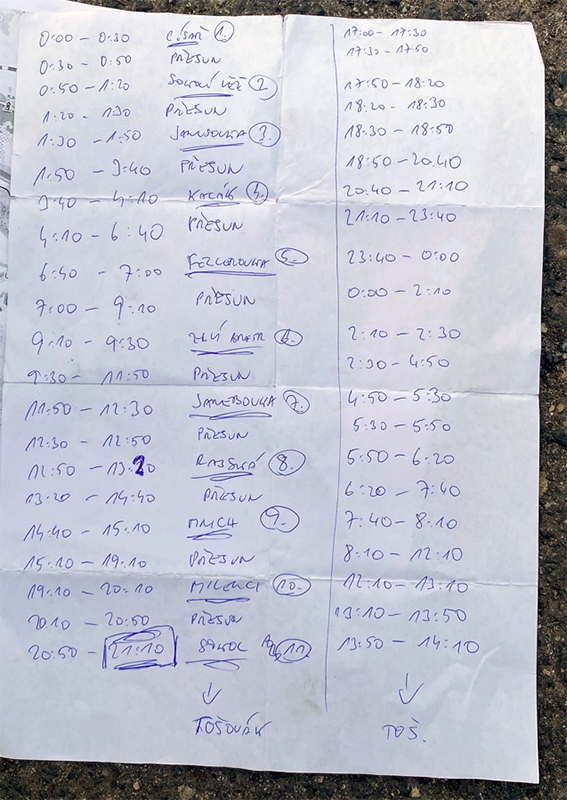 0:00 – 0:30 1. 17:00 – 17:30
0:30 – 0:50 PŘESUN 17:30 – 17:50
0:50 – 1:20 2 17:50 – 18:20
1:20 – 1:30 PŘESUN 18:20 – 18:30
1:30 – 1:50 3. 18:30 – 18:50
1:50 – 3:40 PŘESUN 18:50 – 20:40
3:40 – 4:10 4. 20:40 – 21:10
4:10 – 6:40 PŘESUN 21:10 – 23:40
6:40 – 7:00 5. 23:40 – 0:00
7:00 – 9:10 PŘESUN 0:00 – 2:10
9:10 – 9:30 6. 2:10 – 2:30
9:30 – 11:50 PŘESUN 2:30 – 4:50
11:50 – 12:30 7. 4:50 – 5:30
12:30 – 12:50 PŘESUN 5:30 – 5:50
12:50 – 13:20 8. 5:50 – 6:20
13:20 – 14:40 PŘESUN 6:20 – 7:40
14:40 – 15:10 MNICH 9. 7:40 – 8:10
15:10 – 19:10 PŘESUN 8:10 – 12:10
19:10 – 20:10 MILENCI 10. 12:10 – 13:10
20:10 – 20:50 PŘESUN 13:10 – 13:50
20:50 – 21:10 SOKOL 11 13:50 – 14:10
TOŠOVÁK TOŠ.